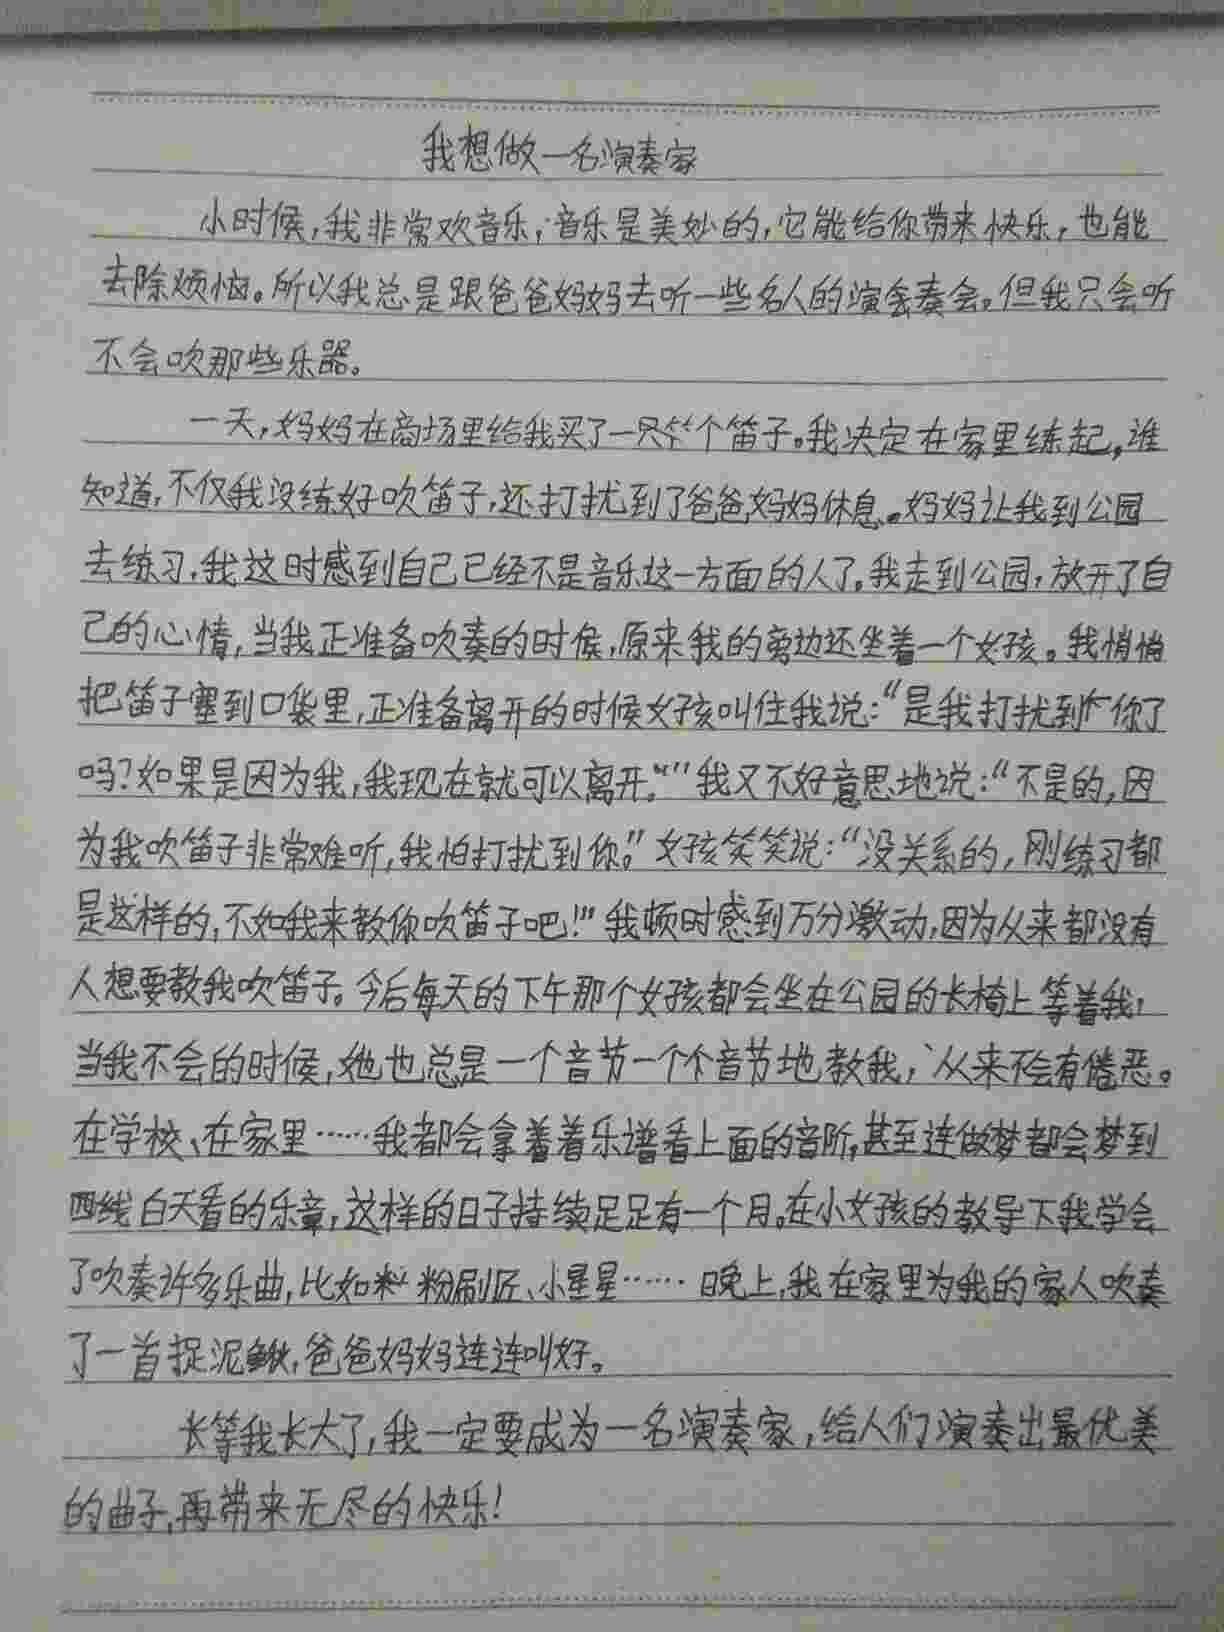 我想做一名演奏家
小时候，我非常欢音乐，音乐是美妙的，它能给你带来快乐，也能
去除烦恼。所以我总是跟爸爸妈妈去听一些名人的演奏会。但我只会听
不会吹那些乐器。
一天，妈妈在商场里给我买了一只个笛子。我决定在家里练起，谁
知道，不仅我没练好吹笛子，还打扰到了爸爸妈妈休息。妈妈让我到公园
去练习，我这时感到自己已经不是音乐这一方面的人了。我走到公园，放开了自
己的心情，当我正准备吹奏的时候，原来我的旁边还坐着一个女孩。我悄悄
把笛子塞到口袋里，正准备离开的时候女孩叫住我说：“是我打扰到你了
吗？如果是因为我，我现在就可以离开。”我又不好意思地说：“不是的，因
为我吹笛子非常难听，我怕打扰到你。”女孩笑笑说：“没关系的，刚练习都
是这样的，不如我来教你吹笛子吧！”我顿时感到万分激动，因为从来都没有
人想要教我吹笛子。今后每天的下午那个女孩都会坐在公园的长椅上等着我，
当我不会的时候，她也总是一个音节一个个音节地教我，从来不会有倦恶。
在学校、在家里……我都会拿着着乐谱看上面的音阶，甚至连做梦都会梦到
白天看的乐章，这样的日子持续足足有一个月。在小女孩的教导下我学会
了吹奏许多乐曲，比如粉刷匠、小星星……晚上，我在家里为我的家人吹奏
了一首捉泥鳅，爸爸妈妈连连叫好。
长等我长大了，我一定要成为一名演奏家，给人们演奏出最优美
的曲子，再带来无尽的快乐！